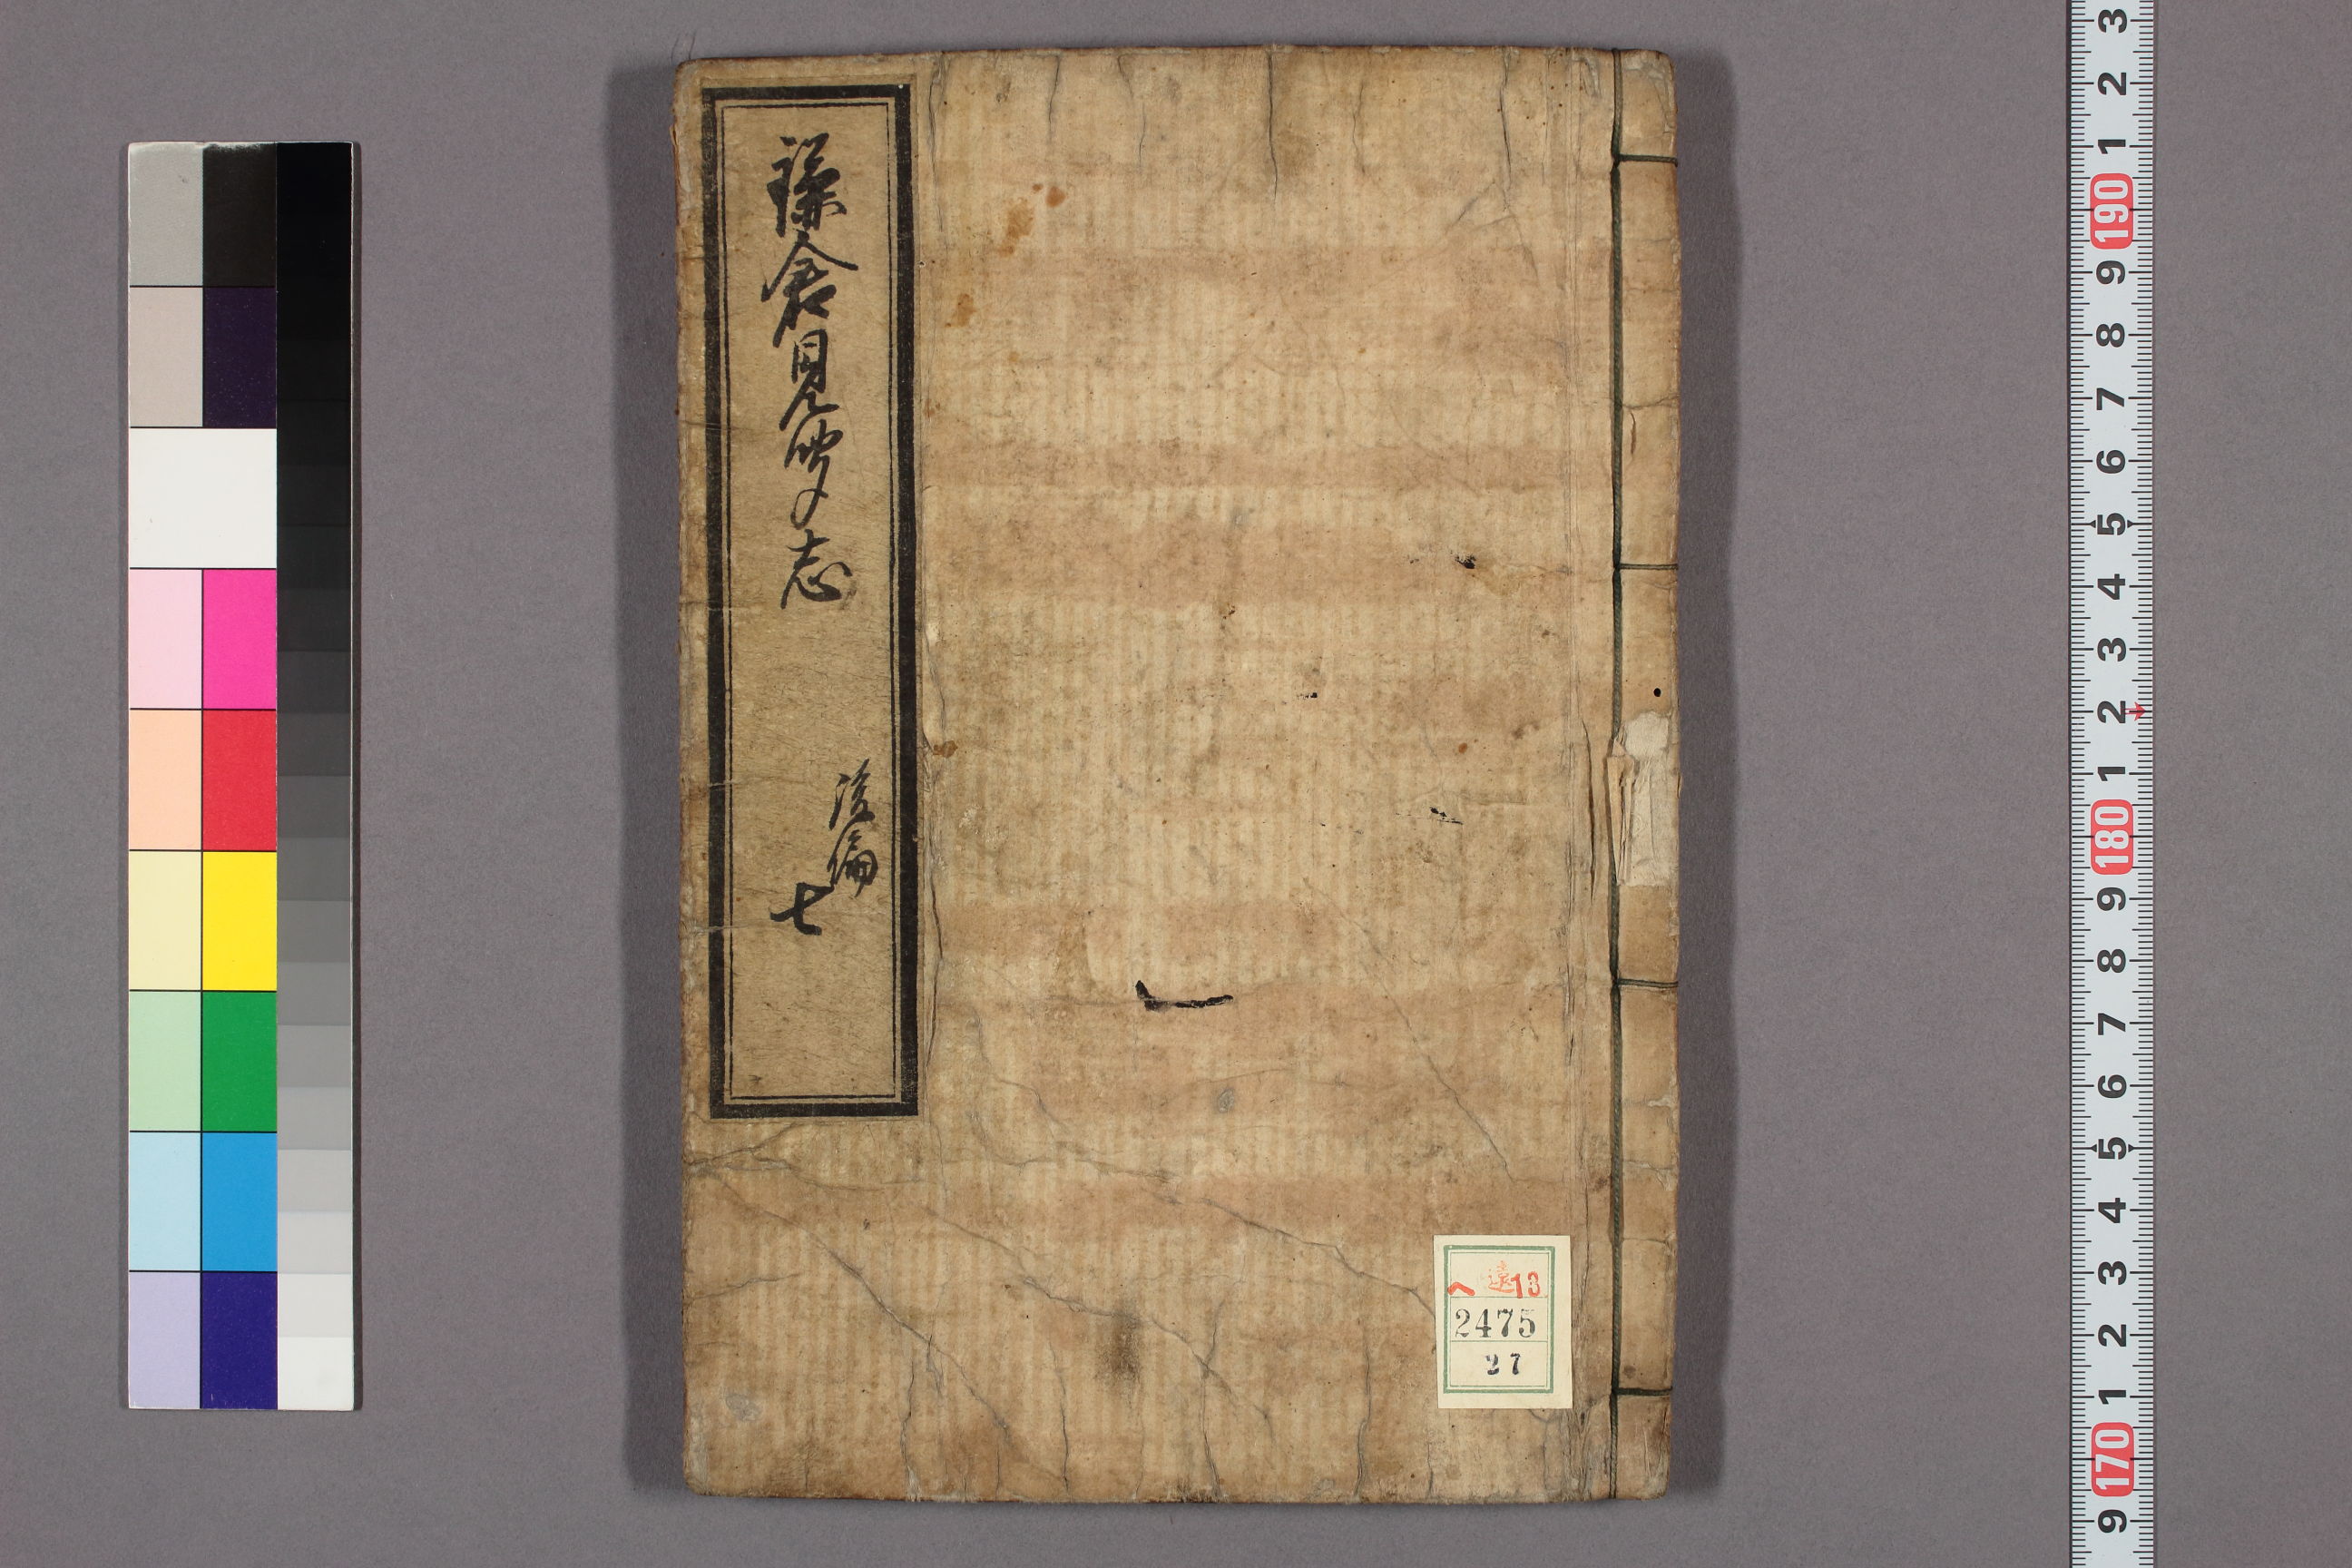 鎌倉見聞志
後編
七
ヘ 遠 13
2475
27
3
2
1
190
9
8
7
6
5
4
3
2
1
180
9
8
7
6
5
4
3
2
1
170
9